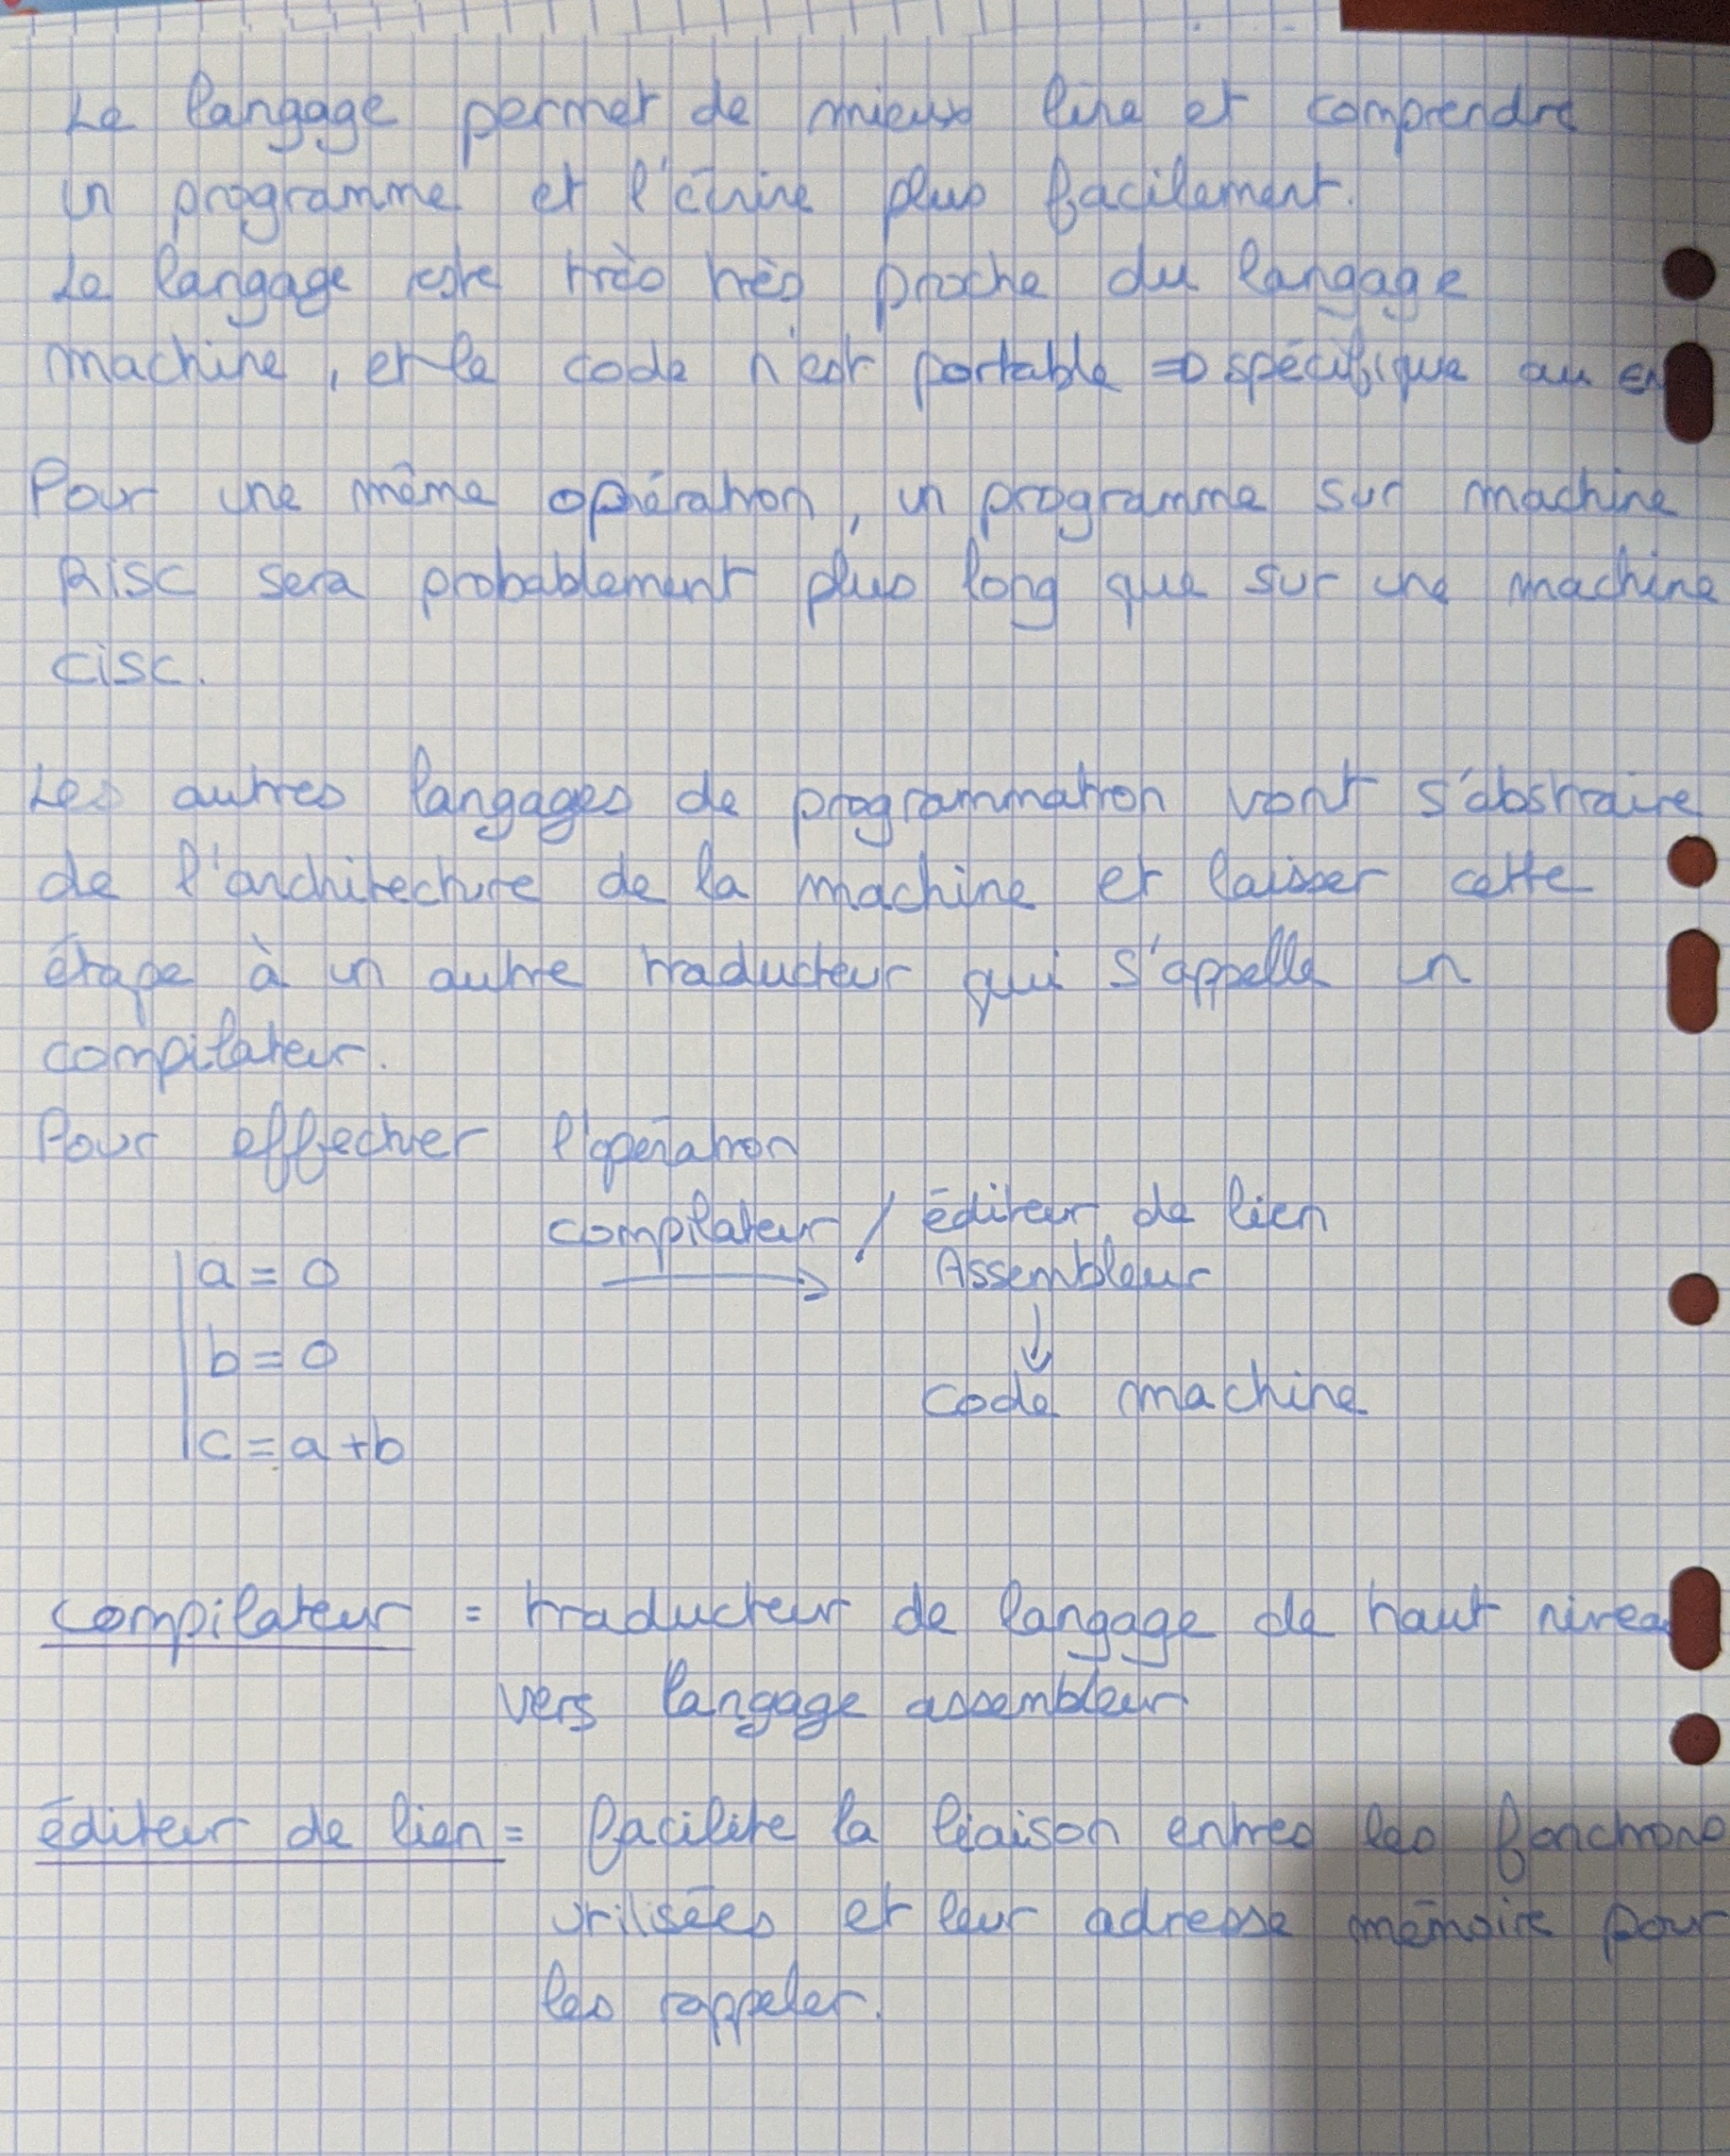 Le langage permet de mieux lire et comprendre
un programme et l'écrire plus facilement.
Le langage reste très très proche du langage
machine, et le code n'est portable => spécifique au
Pour une même opération, un programme sur machine
RISC sera probablement plus long que sur une machine
CISC.
Les autres langages de programmation vont s'abstraire
de l'architecture de la machine et laisser cette
étape à un autre traducteur qui s'appelle un
compilateur.
Pour effectuer l'opération
compilateur / éditeur de lien
a = 0 → Assembleur
↓
b = 0
code machine
c = a + b
compilateur = traducteur de langage de haut niveau
vers langage assembleur
éditeur de lien = facilite la liaison entres les fonctions
utilisées et leur adresse mémoire pour
les rappeler.